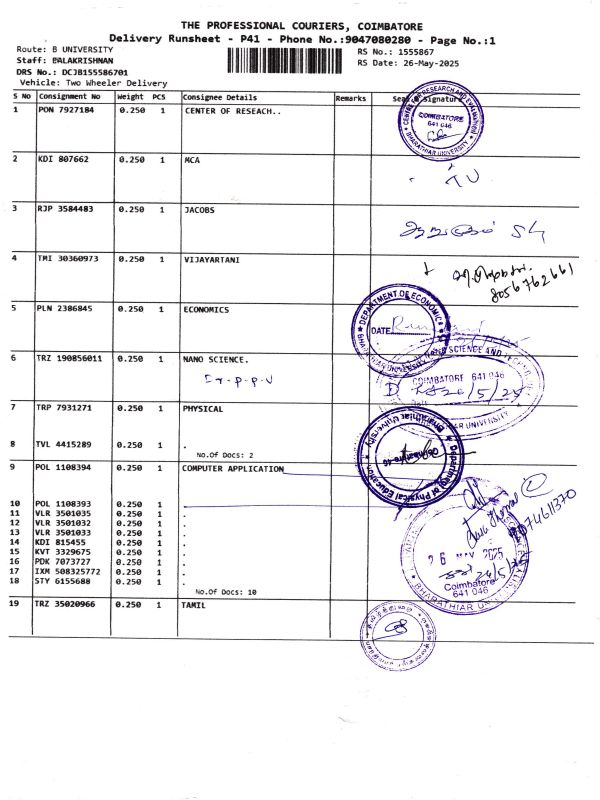 THE PROFESSIONAL COURIERS, COIMBATORE
Delivery Runsheet - P41 - Phone No.:9047080280 - Page No.:1
Route: B UNIVERSITY
RS No.: 1555867
Staff: BALAKRISHNAN
RS Date: 26-May-2025
DRS No.: DCJB155586701
Vehicle: Two Wheeler Delivery
S No Consignment No Weight PCS Consignee Details Remarks Seal & Signature
1 PON 7927184 0.250 1 CENTER OF RESEACH..
COIMBATORE
641 046
BHARATHIAR UNIVERSITY
2 KDI 807662 0.250 1 MCA
3 RJP 3584483 0.250 1 JACOBS
4 TMI 30360973 0.250 1 VIJAYARTANI
8056762661
5 PLN 2386845 0.250 1 ECONOMICS
DEPARTMENT OF ECONOMICS
DATE
6 TRZ 190856011 0.250 1 NANO SCIENCE.
COIMBATORE 641 046
26/5/25
7 TRP 7931271 0.250 1 PHYSICAL
Bharathiar University
Department of Physical Education
8 TVL 4415289 0.250 1 .
No.Of Docs: 2
9 POL 1108394 0.250 1 COMPUTER APPLICATION
10 POL 1108393 0.250 1 .
11 VLR 3501035 0.250 1 .
12 VLR 3501032 0.250 1 .
13 VLR 3501033 0.250 1 .
14 KDI 815455 0.250 1 .
15 KVT 3329675 0.250 1 .
16 PDK 7073727 0.250 1 .
17 IXM 508325772 0.250 1 .
18 STY 6155688 0.250 1 .
No.Of Docs: 10
26 MAY 2025
Coimbatore
641 046
BHARATHIAR UNIVERSITY
19 TRZ 35020966 0.250 1 TAMIL